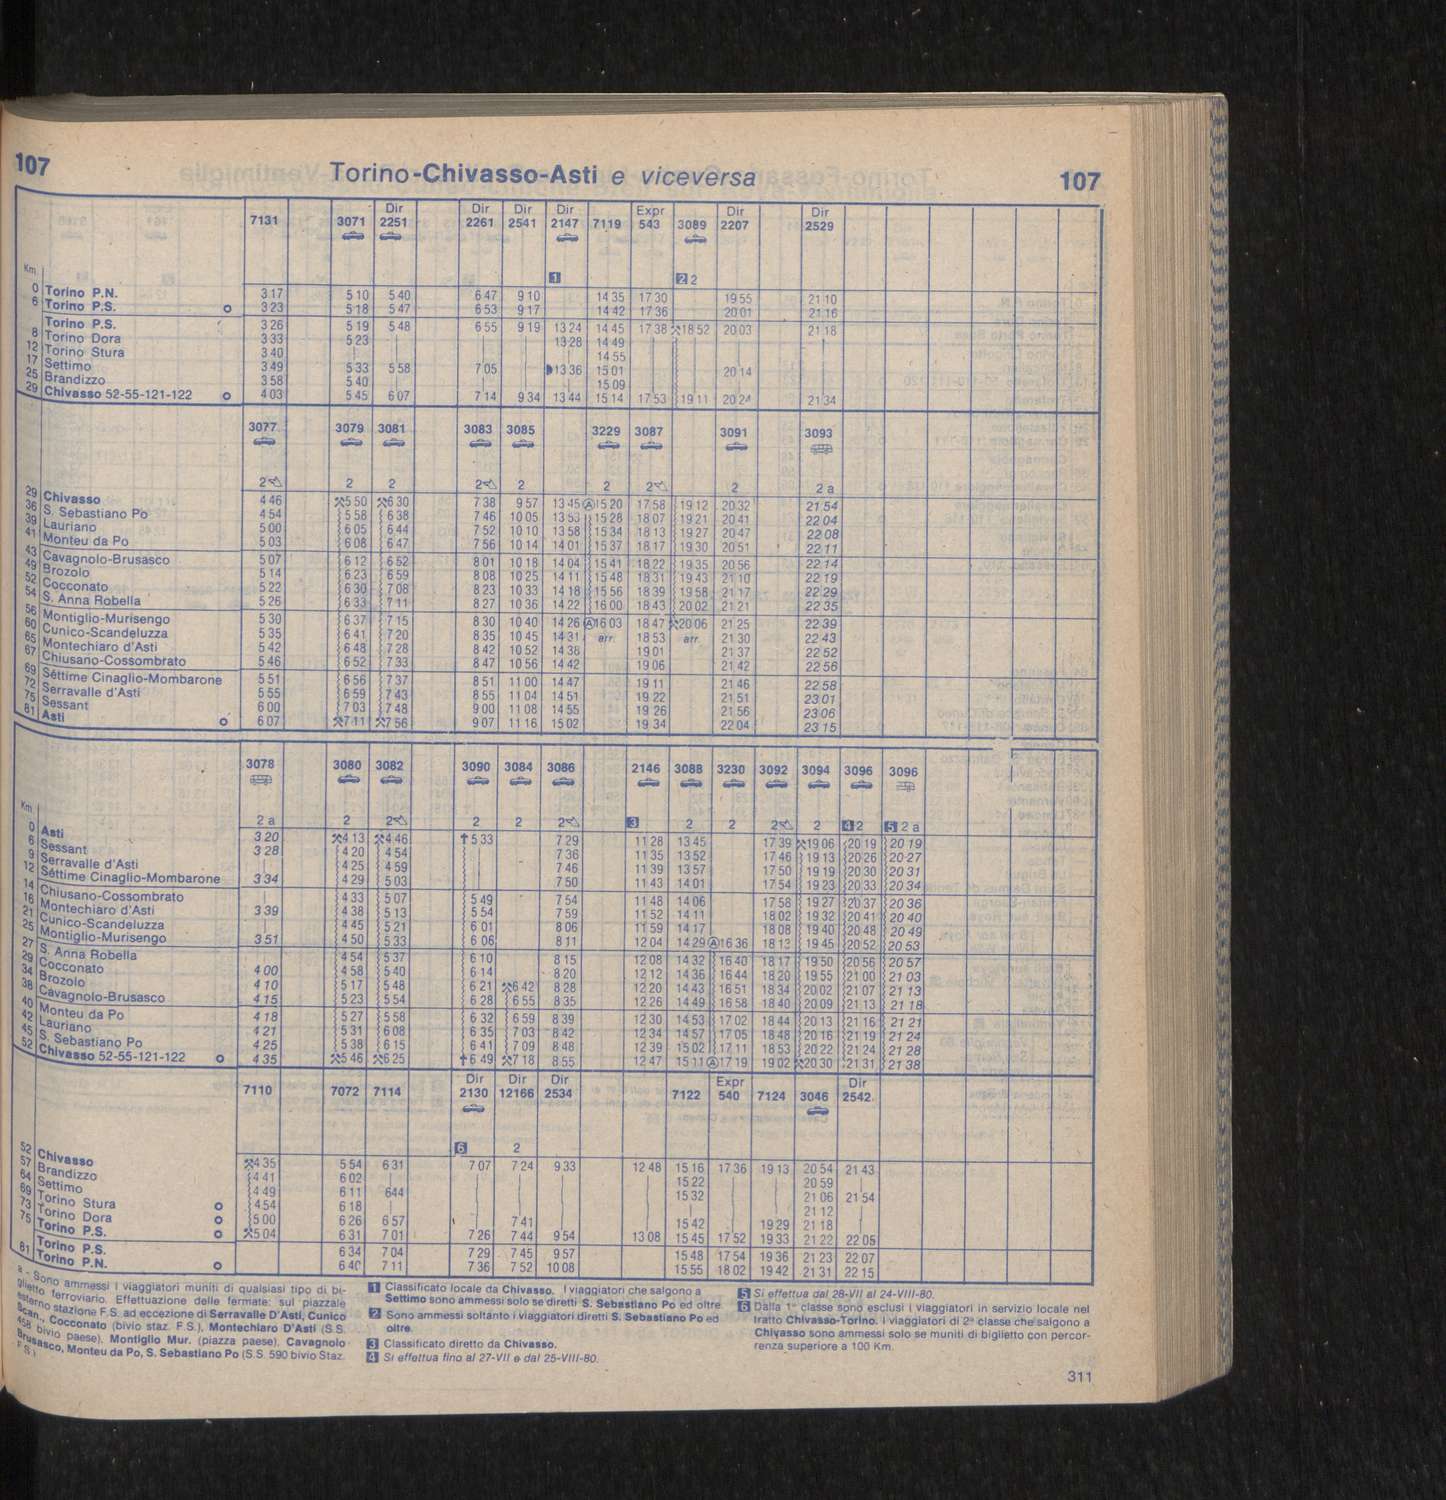 107 Torino-Chivasso-Asti e viceversa 107
Dir Dir Dir Dir Expr Dir Dir
7131 3071 2251 2261 2541 2147 7119 543 3089 2207 2529
1 2 2
Km.
0 Torino P.N. 3 17 5 10 5 40 6 47 9 10 14 35 17 30 19 55 21 10
6 Torino P.S. o 3 23 5 18 5 47 6 53 9 17 14 42 17 36 20 01 21 16
Torino P.S. 3 26 5 19 5 48 6 55 9 19 13 24 14 45 17 38 ⚒18 52 20 03 21 18
8 Torino Dora 3 33 5 23 | | | 13 28 14 49 | | | |
12 Torino Stura 3 40 | | | | | 14 55 | | | |
17 Settimo 3 49 5 33 5 58 7 05 | ◗13 36 15 01 | | 20 14 |
25 Brandizzo 3 58 5 40 | | | | 15 09 | | | |
29 Chivasso 52-55-121-122 o 4 03 5 45 6 07 7 14 9 34 13 44 15 14 17 53 19 11 20 24 21 34
3077 3079 3081 3083 3085 3229 3087 3091 3093
2 2 2 2 2 2 2 2 2 a
29 Chivasso 4 46 ⚒5 50 ⚒6 30 7 38 9 57 13 45 Ⓐ15 20 17 58 19 12 20 32 21 54
36 S. Sebastiano Po 4 54 5 58 6 38 7 46 10 05 13 53 15 28 18 07 19 21 20 41 22 04
39 Lauriano 5 00 6 05 6 44 7 52 10 10 13 58 15 34 18 13 19 27 20 47 22 08
41 Monteu da Po 5 03 6 08 6 47 7 56 10 14 14 01 15 37 18 17 19 30 20 51 22 11
43 Cavagnolo-Brusasco 5 07 6 12 6 52 8 01 10 18 14 04 15 41 18 22 19 35 20 56 22 14
49 Brozolo 5 14 6 23 6 59 8 08 10 25 14 11 15 48 18 31 19 43 21 10 22 19
52 Cocconato 5 22 6 30 7 08 8 23 10 33 14 18 15 56 18 39 19 58 21 17 22 29
54 S. Anna Robella 5 26 6 33 7 11 8 27 10 36 14 22 16 00 18 43 20 02 21 21 22 35
56 Montiglio-Murisengo 5 30 6 37 7 15 8 30 10 40 14 26 Ⓐ16 03 18 47 ⚒20 06 21 25 22 39
60 Cunico-Scandeluzza 5 35 6 41 7 20 8 35 10 45 14 31 arr. 18 53 arr. 21 30 22 43
65 Montechiaro d'Asti 5 42 6 48 7 28 8 42 10 52 14 38 19 01 21 37 22 52
67 Chiusano-Cossombrato 5 46 6 52 7 33 8 47 10 56 14 42 19 06 21 42 22 56
69 Séttime Cinaglio-Mombarone 5 51 6 56 7 37 8 51 11 00 14 47 19 11 21 46 22 58
72 Serravalle d'Asti 5 55 6 59 7 43 8 55 11 04 14 51 19 22 21 51 23 01
75 Sessant 6 00 7 03 7 48 9 00 11 08 14 55 19 26 21 56 23 06
81 Asti o 6 07 ⚒7 11 ⚒7 56 9 07 11 16 15 02 19 34 22 04 23 15
3078 3080 3082 3090 3084 3086 2146 3088 3230 3092 3094 3096 3096
Km
2 a 2 2 2 2 2 3 2 2 2 2 4 2 5 2 a
0 Asti 3 20 ⚒4 13 ⚒4 46 ✝5 33 7 29 11 28 13 45 17 39 ⚒19 06 20 19 20 19
6 Sessant 3 28 4 20 4 54 | 7 36 11 35 13 52 17 46 19 13 20 26 20 27
9 Serravalle d'Asti | 4 25 4 59 | 7 46 11 39 13 57 17 50 19 19 20 30 20 31
12 Séttime Cinaglio-Mombarone 3 34 4 29 5 03 | 7 50 11 43 14 01 17 54 19 23 20 33 20 34
14 Chiusano-Cossombrato | 4 33 5 07 5 49 7 54 11 48 14 06 17 58 19 27 20 37 20 36
16 Montechiaro d'Asti 3 39 4 38 5 13 5 54 7 59 11 52 14 11 18 02 19 32 20 41 20 40
21 Cunico-Scandeluzza | 4 45 5 21 6 01 8 06 11 59 14 17 18 08 19 40 20 48 20 49
25 Montiglio-Murisengo 3 51 4 50 5 33 6 06 8 11 12 04 14 29 Ⓐ16 36 18 13 19 45 20 52 20 53
27 S. Anna Robella | 4 54 5 37 6 10 8 15 12 08 14 32 16 40 18 17 19 50 20 56 20 57
29 Cocconato 4 00 4 58 5 40 6 14 8 20 12 12 14 36 16 44 18 20 19 55 21 00 21 03
34 Brozolo 4 10 5 17 5 48 6 21 ⚒6 42 8 28 12 20 14 43 16 51 18 34 20 02 21 07 21 13
38 Cavagnolo-Brusasco 4 15 5 23 5 54 6 28 6 55 8 35 12 26 14 49 16 58 18 40 20 09 21 13 21 18
40 Monteu da Po 4 18 5 27 5 58 6 32 6 59 8 39 12 30 14 53 17 02 18 44 20 13 21 16 21 21
42 Lauriano 4 21 5 31 6 08 6 35 7 03 8 42 12 34 14 57 17 05 18 48 20 16 21 19 21 24
45 S. Sebastiano Po 4 25 5 38 6 15 6 41 7 09 8 48 12 39 15 02 17 11 18 53 20 22 21 24 21 28
52 Chivasso 52-55-121-122 o 4 35 ⚒5 46 ⚒6 25 ✝6 49 ⚒7 18 8 55 12 47 15 11 Ⓐ17 19 19 02 ⚒20 30 21 31 21 38
Dir Dir Dir Expr Dir
7110 7072 7114 2130 12166 2534 7122 540 7124 3046 2542
6 2
52 Chivasso ⚒4 35 5 54 6 31 7 07 7 24 9 33 12 48 15 16 17 36 19 13 20 54 21 43
57 Brandizzo 4 41 6 02 | | | | | 15 22 | | 20 59 |
64 Settimo 4 49 6 11 644 | | | | 15 32 | | 21 06 21 54
69 Torino Stura o 4 54 6 18 | | | | | | | | 21 12 |
73 Torino Dora o 5 00 6 26 6 57 | 7 41 | | 15 42 | 19 29 21 18 |
75 Torino P.S. o ⚒5 04 6 31 7 01 7 26 7 44 9 54 13 08 15 45 17 52 19 33 21 22 22 05
Torino P.S. 6 34 7 04 7 29 7 45 9 57 15 48 17 54 19 36 21 23 22 07
81 Torino P.N. o 6 40 7 11 7 36 7 52 10 08 15 55 18 02 19 42 21 31 22 15
a - Sono ammessi i viaggiatori muniti di qualsiasi tipo di bi-
glietto ferroviario. Effettuazione delle fermate: sul piazzale
esterno stazione F.S. ad eccezione di Serravalle D'Asti, Cunico
Scan., Cocconato (bivio staz. F.S.), Montechiaro D'Asti (S.S.
458 bivio paese), Montiglio Mur. (piazza paese), Cavagnolo-
Brusasco, Monteu da Po, S. Sebastiano Po (S.S. 590 bivio Staz.
F.S.)
1 Classificato locale da Chivasso. I viaggiatori che salgono a
Settimo sono ammessi solo se diretti S. Sebastiano Po ed oltre.
2 Sono ammessi soltanto i viaggiatori diretti S. Sebastiano Po ed
oltre.
3 Classificato diretto da Chivasso.
4 Si effettua fino al 27-VII e dal 25-VIII-80.
5 Si effettua dal 28-VII al 24-VIII-80.
6 Dalla 1ª classe sono esclusi i viaggiatori in servizio locale nel
tratto Chivasso-Torino. I viaggiatori di 2ª classe che salgono a
Chivasso sono ammessi solo se muniti di biglietto con percor-
renza superiore a 100 Km.
311